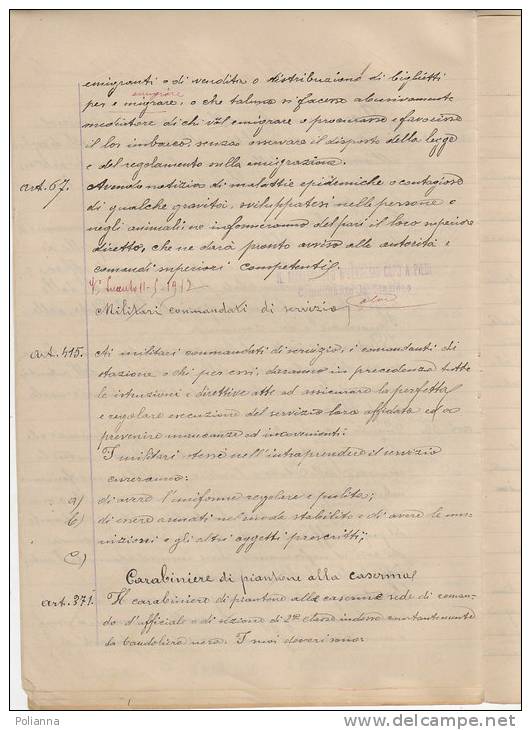 emigranti o di vendita o distribuzione di biglietti
emigrare
per e migrare, o che taluno si facesse abusivamente
mediatore di chi vuol emigrare e procurasse e favorisse
il loro imbarco, senza osservare il disposto della legge
e del regolamento sulla emigrazione.
Art. 67. Avendo notizia di malattie epidemiche o contagiose
di qualche gravità, sviluppatesi nelle persone o
negli animali, ne informeranno del pari il loro superiore
diretto, che ne darà pronto avviso alle autorità e
comandi superiori competenti.
11-5-1912
Militari commandati di servizio
Art. 415. Ai militari commandati di servizio, i comandanti di
stazione o chi per essi, daranno in precedenza tutte
le istruzioni e direttive atte ad assicurare la perfetta
e regolare esecuzione del servizio loro affidato ed a
prevenire mancanze ed inconvenienti.
I militari stessi nell'intraprendere il servizio
cureranno:
a) di avere l'uniforme regolare e pulita;
b) di essere armati nel modo stabilito e di avere le mu-
nizioni e gli altri oggetti prescritti;
c)
Carabiniere di piantone alla caserma
Art. 371. Il carabiniere di piantone alla caserma sede di coman-
do d'ufficiale o di sezione di 2ª classe indossa costantemente
la bandoliera nera. I suoi doveri sono:
Polianna
www.delcampe.net